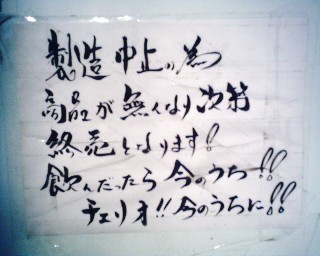 製造中止の為
商品が無くなり次第
終売となります!
飲んだったら 今のうち!!
チェリオ!! 今のうちに!!